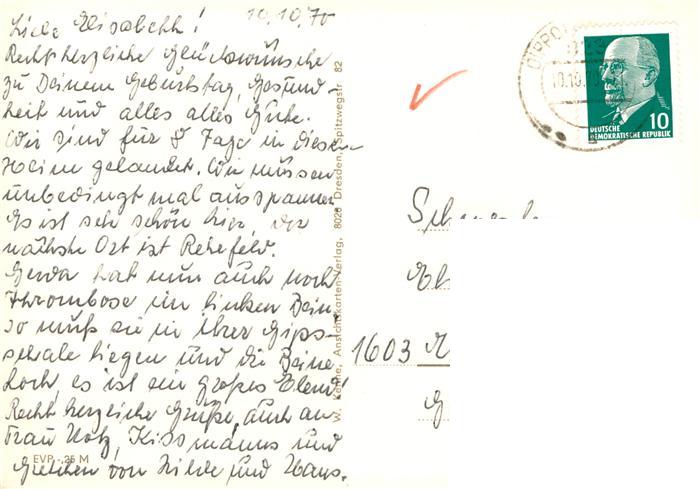 Liebe Elisabeth! 10.10.70
Recht herzliche Glückwünsche
zu Deinem Geburtstag, Gesund-
heit und alles alles Gute.
Wir sind für 8 Tage in diesem
Heim gelandet. Wir müssen
unbedingt mal ausspannen
Es ist sehr schön hier, der
nächste Ort ist Rehefeld.
Gerda hat nun auch noch
Thrombose im linken Bein,
so muß sie in ihrer Gips-
schale liegen und die Beine
hoch, es ist ein großes Elend!
Recht herzliche Grüße, auch an
Frau Notz, Kissmanns und
Gretchen von Hilde und Hans.
EVP -,25 M
Ansichtskarten-Verlag, 8020 Dresden, Spitzwegstr 82
10.10.70
10
DEUTSCHE
DEMOKRATISCHE REPUBLIK
1603